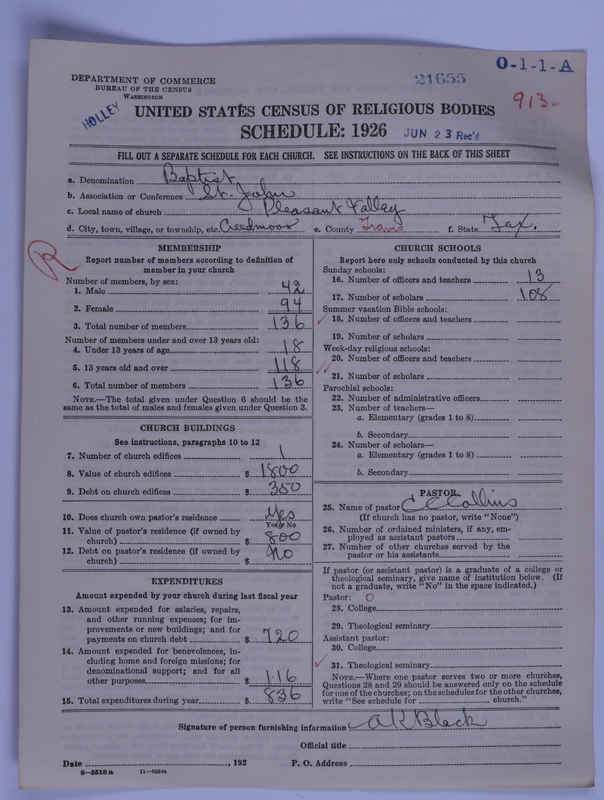 DEPARTMENT OF COMMERCE
BUREAU OF THE CENSUS
WASHINGTON
21655
O-1-1-A
HOLLEY
913-
UNITED STATES CENSUS OF RELIGIOUS BODIES
SCHEDULE: 1926
JUN 23 Rec'd
FILL OUT A SEPARATE SCHEDULE FOR EACH CHURCH. SEE INSTRUCTIONS ON THE BACK OF THIS SHEET
a. Denomination Baptist
b. Association or Conference St. John
c. Local name of church Pleasant Valley
d. City, town, village, or township, etc. Creedmoor e. County Travis f. State Tex.
R
MEMBERSHIP
Report number of members according to definition of
member in your church
Number of members, by sex:
1. Male 42
2. Female 94
3. Total number of members 136
Number of members under and over 13 years old:
4. Under 13 years of age 18
5. 13 years old and over 118
6. Total number of members 136
NOTE.—The total given under Question 6 should be
same as the total of males and females given under Question 3.
CHURCH BUILDINGS
See instructions, paragraphs 10 to 12
7. Number of church edifices 1
8. Value of church edifices $ 1800
9. Debt on church edifices $ 350
10. Does church own pastor's residence Yes
Yes or No
11. Value of pastor's residence (if owned by
church) $ 800
12. Debt on pastor's residence (if owned by
church) $ No
EXPENDITURES
Amount expended by your church during last fiscal year
13. Amount expended for salaries, repairs,
and other running expenses; for im-
provements or new buildings; and for
payments on church debt $ 720
14. Amount expended for benevolences, in-
cluding home and foreign missions; for
denominational support; and for all
other purposes $ 116
15. Total expenditures during year $ 836
CHURCH SCHOOLS
Report here only schools conducted by this church
Sunday schools:
16. Number of officers and teachers 13
17. Number of scholars 108
Summer vacation Bible schools:
18. Number of officers and teachers
19. Number of scholars
Week-day religious schools:
20. Number of officers and teachers
21. Number of scholars
Parochial schools:
22. Number of administrative officers
23. Number of teachers—
a. Elementary (grades 1 to 8)
b. Secondary
24. Number of scholars—
a. Elementary (grades 1 to 8)
b. Secondary
PASTOR
25. Name of pastor C E Collins
(If church has no pastor, write "None")
26. Number of ordained ministers, if any, em-
ployed as assistant pastors
27. Number of other churches served by the
pastor or his assistants
If pastor (or assistant pastor) is a graduate of a college or
theological seminary, give name of institution below. (If
not a graduate, write "No" in the space indicated.)
Pastor: O
28. College
29. Theological seminary
Assistant pastor:
30. College
31. Theological seminary
NOTE.—Where one pastor serves two or more churches,
Questions 28 and 29 should be answered only on the schedule
for one of the churches; on the schedules for the other churches,
write "See schedule for church."
Signature of person furnishing information A K Black
Official title
Date , 192 P. O. Address
8-5518a 11-9034a